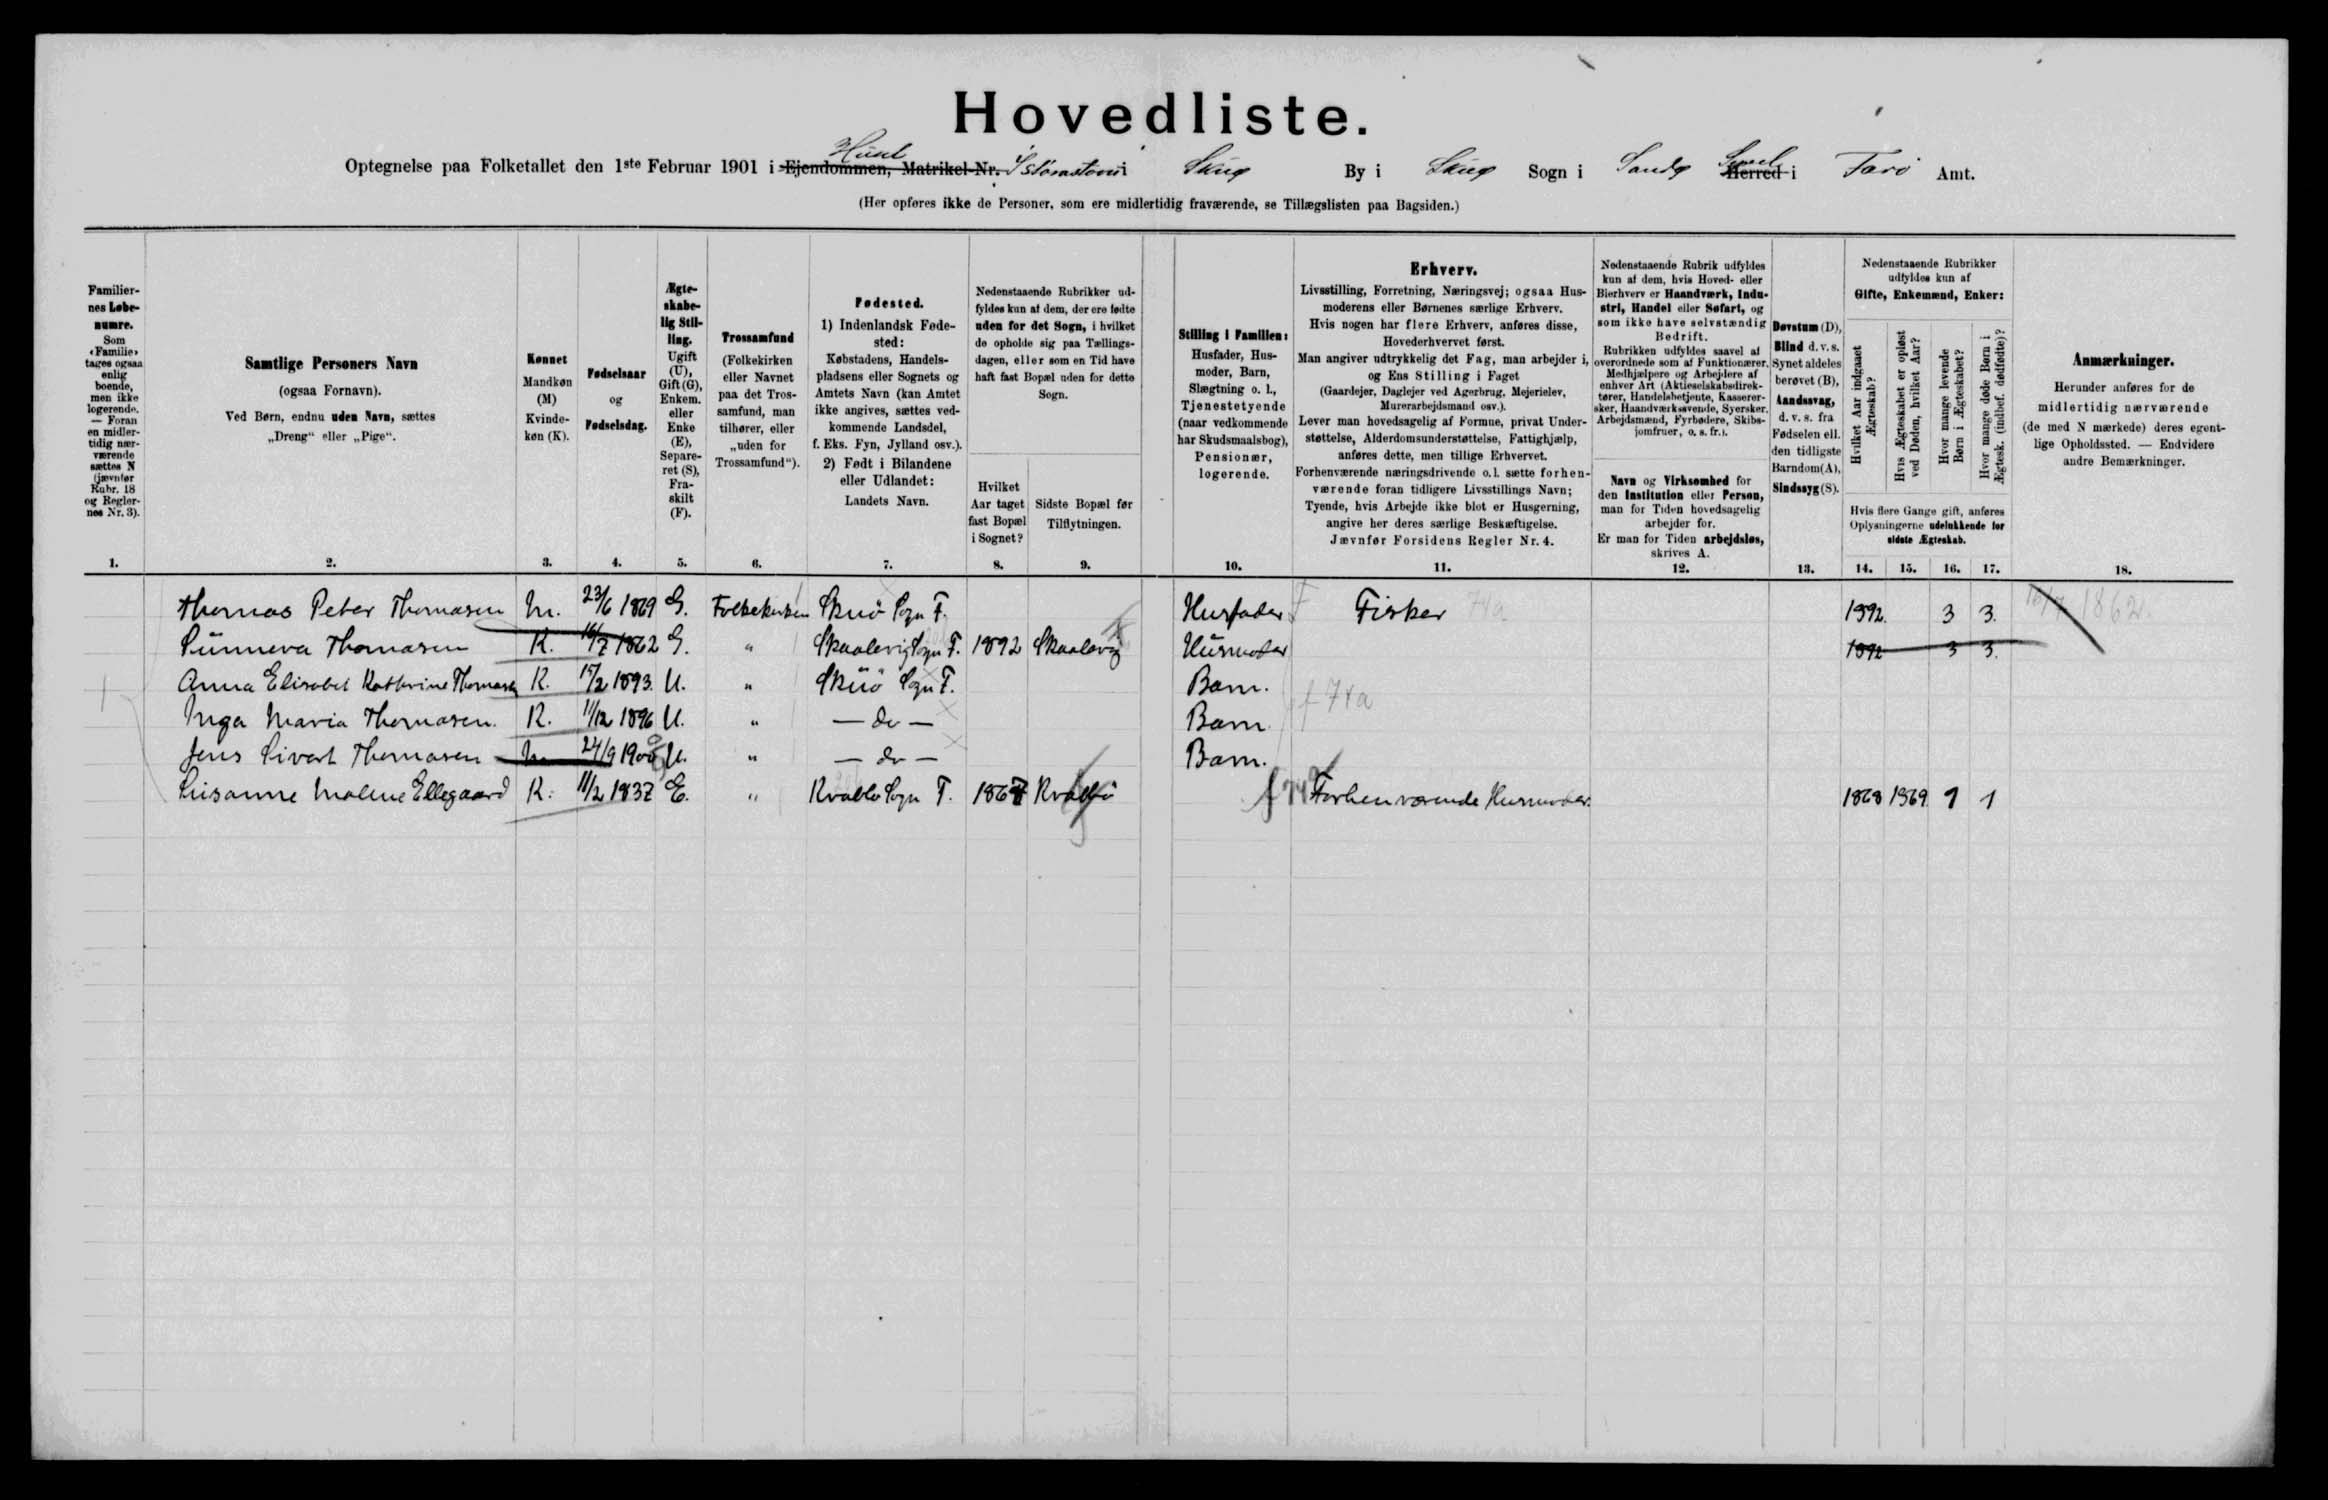 Hovedliste.
Optegnelse paa Folketallet den 1ste Februar 1901 i Ejendommen, Matrikel-Nr. Huset By i Sogn i Sandø Herred i Syssel Færø Amt.
(Her opføres ikke de Personer, som ere midlertidig fraværende, se Tillægslisten paa Bagsiden.)
Familiernes Løbenumre.
Som «Familie» tages ogsaa enlig boende, men ikke logerende. — Foran en midlertidig nærværende sættes N (jævnfør Rubr. 18 og Reglernes Nr. 3).
Samtlige Personers Navn
(ogsaa Fornavn).
Ved Børn, endnu uden Navn, sættes „Dreng“ eller „Pige“.
Kønnet
Mandkøn (M)
Kvindekøn (K).
Fødselsaar
og
Fødselsdag.
Ægteskabelig Stilling.
Ugift (U), Gift (G), Enkem. eller Enke (E), Separeret (S), Fraskilt (F).
Trossamfund
(Folkekirken eller Navnet paa det Trossamfund, man tilhører, eller „uden for Trossamfund“).
Fødested.
1) Indenlandsk Fødested:
Købstadens, Handelspladsens eller Sognets og Amtets Navn (kan Amtet ikke angives, sættes vedkommende Landsdel, f. Eks. Fyn, Jylland osv.).
2) Født i Bilandene eller Udlandet:
Landets Navn.
Nedenstaaende Rubrikker udfyldes kun af dem, der ere fødte uden for det Sogn, i hvilket de opholde sig paa Tællingsdagen, eller som en Tid have haft fast Bopæl uden for dette Sogn.
Hvilket Aar taget fast Bopæl i Sognet?
Sidste Bopæl før Tilflytningen.
Stilling i Familien:
Husfader, Husmoder, Barn, Slægtning o. l., Tjenestetyende (naar vedkommende har Skudsmaalsbog), Pensionær, logerende.
Erhverv.
Livsstilling, Forretning, Næringsvej; ogsaa Husmoderens eller Børnenes særlige Erhverv.
Hvis nogen har flere Erhverv, anføres disse, Hovederhvervet først.
Man angiver udtrykkelig det Fag, man arbejder i, og Ens Stilling i Faget
(Gaardejer, Daglejer ved Agerbrug, Mejerielev, Murerarbejdsmand osv.).
Lever man hovedsagelig af Formue, privat Understøttelse, Alderdomsunderstøttelse, Fattighjælp, anføres dette, men tillige Erhvervet.
Forhenværende næringsdrivende o. l. sætte forhenværende foran tidligere Livsstillings Navn; Tyende, hvis Arbejde ikke blot er Husgerning, angive her deres særlige Beskæftigelse.
Jævnfør Forsidens Regler Nr. 4.
Nedenstaaende Rubrik udfyldes kun af dem, hvis Hoved- eller Bierhverv er Haandværk, Industri, Handel eller Søfart, og som ikke have selvstændig Bedrift.
Rubrikken udfyldes saavel af overordnede som af Funktionærer, Medhjælpere og Arbejdere af enhver Art (Aktieselskabsdirektører, Handelsbetjente, Kasserersker, Haandværkssvende, Syersker, Arbejdsmænd, Fyrbødere, Skibsjomfruer, o. s. fr.).
Navn og Virksomhed for den Institution eller Person, man for Tiden hovedsagelig arbejder for.
Er man for Tiden arbejdsløs, skrives A.
Døvstum (D), Blind d. v. s. Synet aldeles berøvet (B), Aandssvag, d. v. s. fra Fødselen ell. den tidligste Barndom (A), Sindssyg (S).
Nedenstaaende Rubrikker udfyldes kun af
Gifte, Enkemænd, Enker:
Hvilket Aar indgaaet Ægteskab?
Hvis Ægteskabet er opløst ved Døden, hvilket Aar?
Hvor mange levende Børn i Ægteskabet?
Hvor mange døde Børn i Ægtesk. (indbef. dødfødte)?
Hvis flere Gange gift, anføres Oplysningerne udelukkende for sidste Ægteskab.
Anmærkninger.
Herunder anføres for de midlertidig nærværende (de med N mærkede) deres egentlige Opholdssted. — Endvidere andre Bemærkninger.
1. 2. 3. 4. 5. 6. 7. 8. 9. 10. 11. 12. 13. 14. 15. 16. 17. 18.
Thomas Peter Thomasen M. 23/6 1869 G. Folkekirken Skuö Sogn F. Husfader F Fisker 74a 1892. 3 3. 16/7 1862.
Sünneva Thomasen K. 16/7 1862 G. " Skaalevig Sogn F. 1892 Skaalevig Husmoder 1892 3 3.
1 Anna Elisabet Kathrine Thomasen K. 15/2 1893. U. " Sküö Sogn F. Barn. f 74a
Inga Maria Thomasen. K. 11/12 1896 U. " — do — Barn
Jens Sivert Thomasen M. 24/9 1900 U. " — do — Barn.
Susanne Malene Ellegaard K. 11/2 1837 E. " Kvalbø Sogn F. 1867 Kvalbø f 74a Forhenværende Husmoder. 1868 1869. 1 1